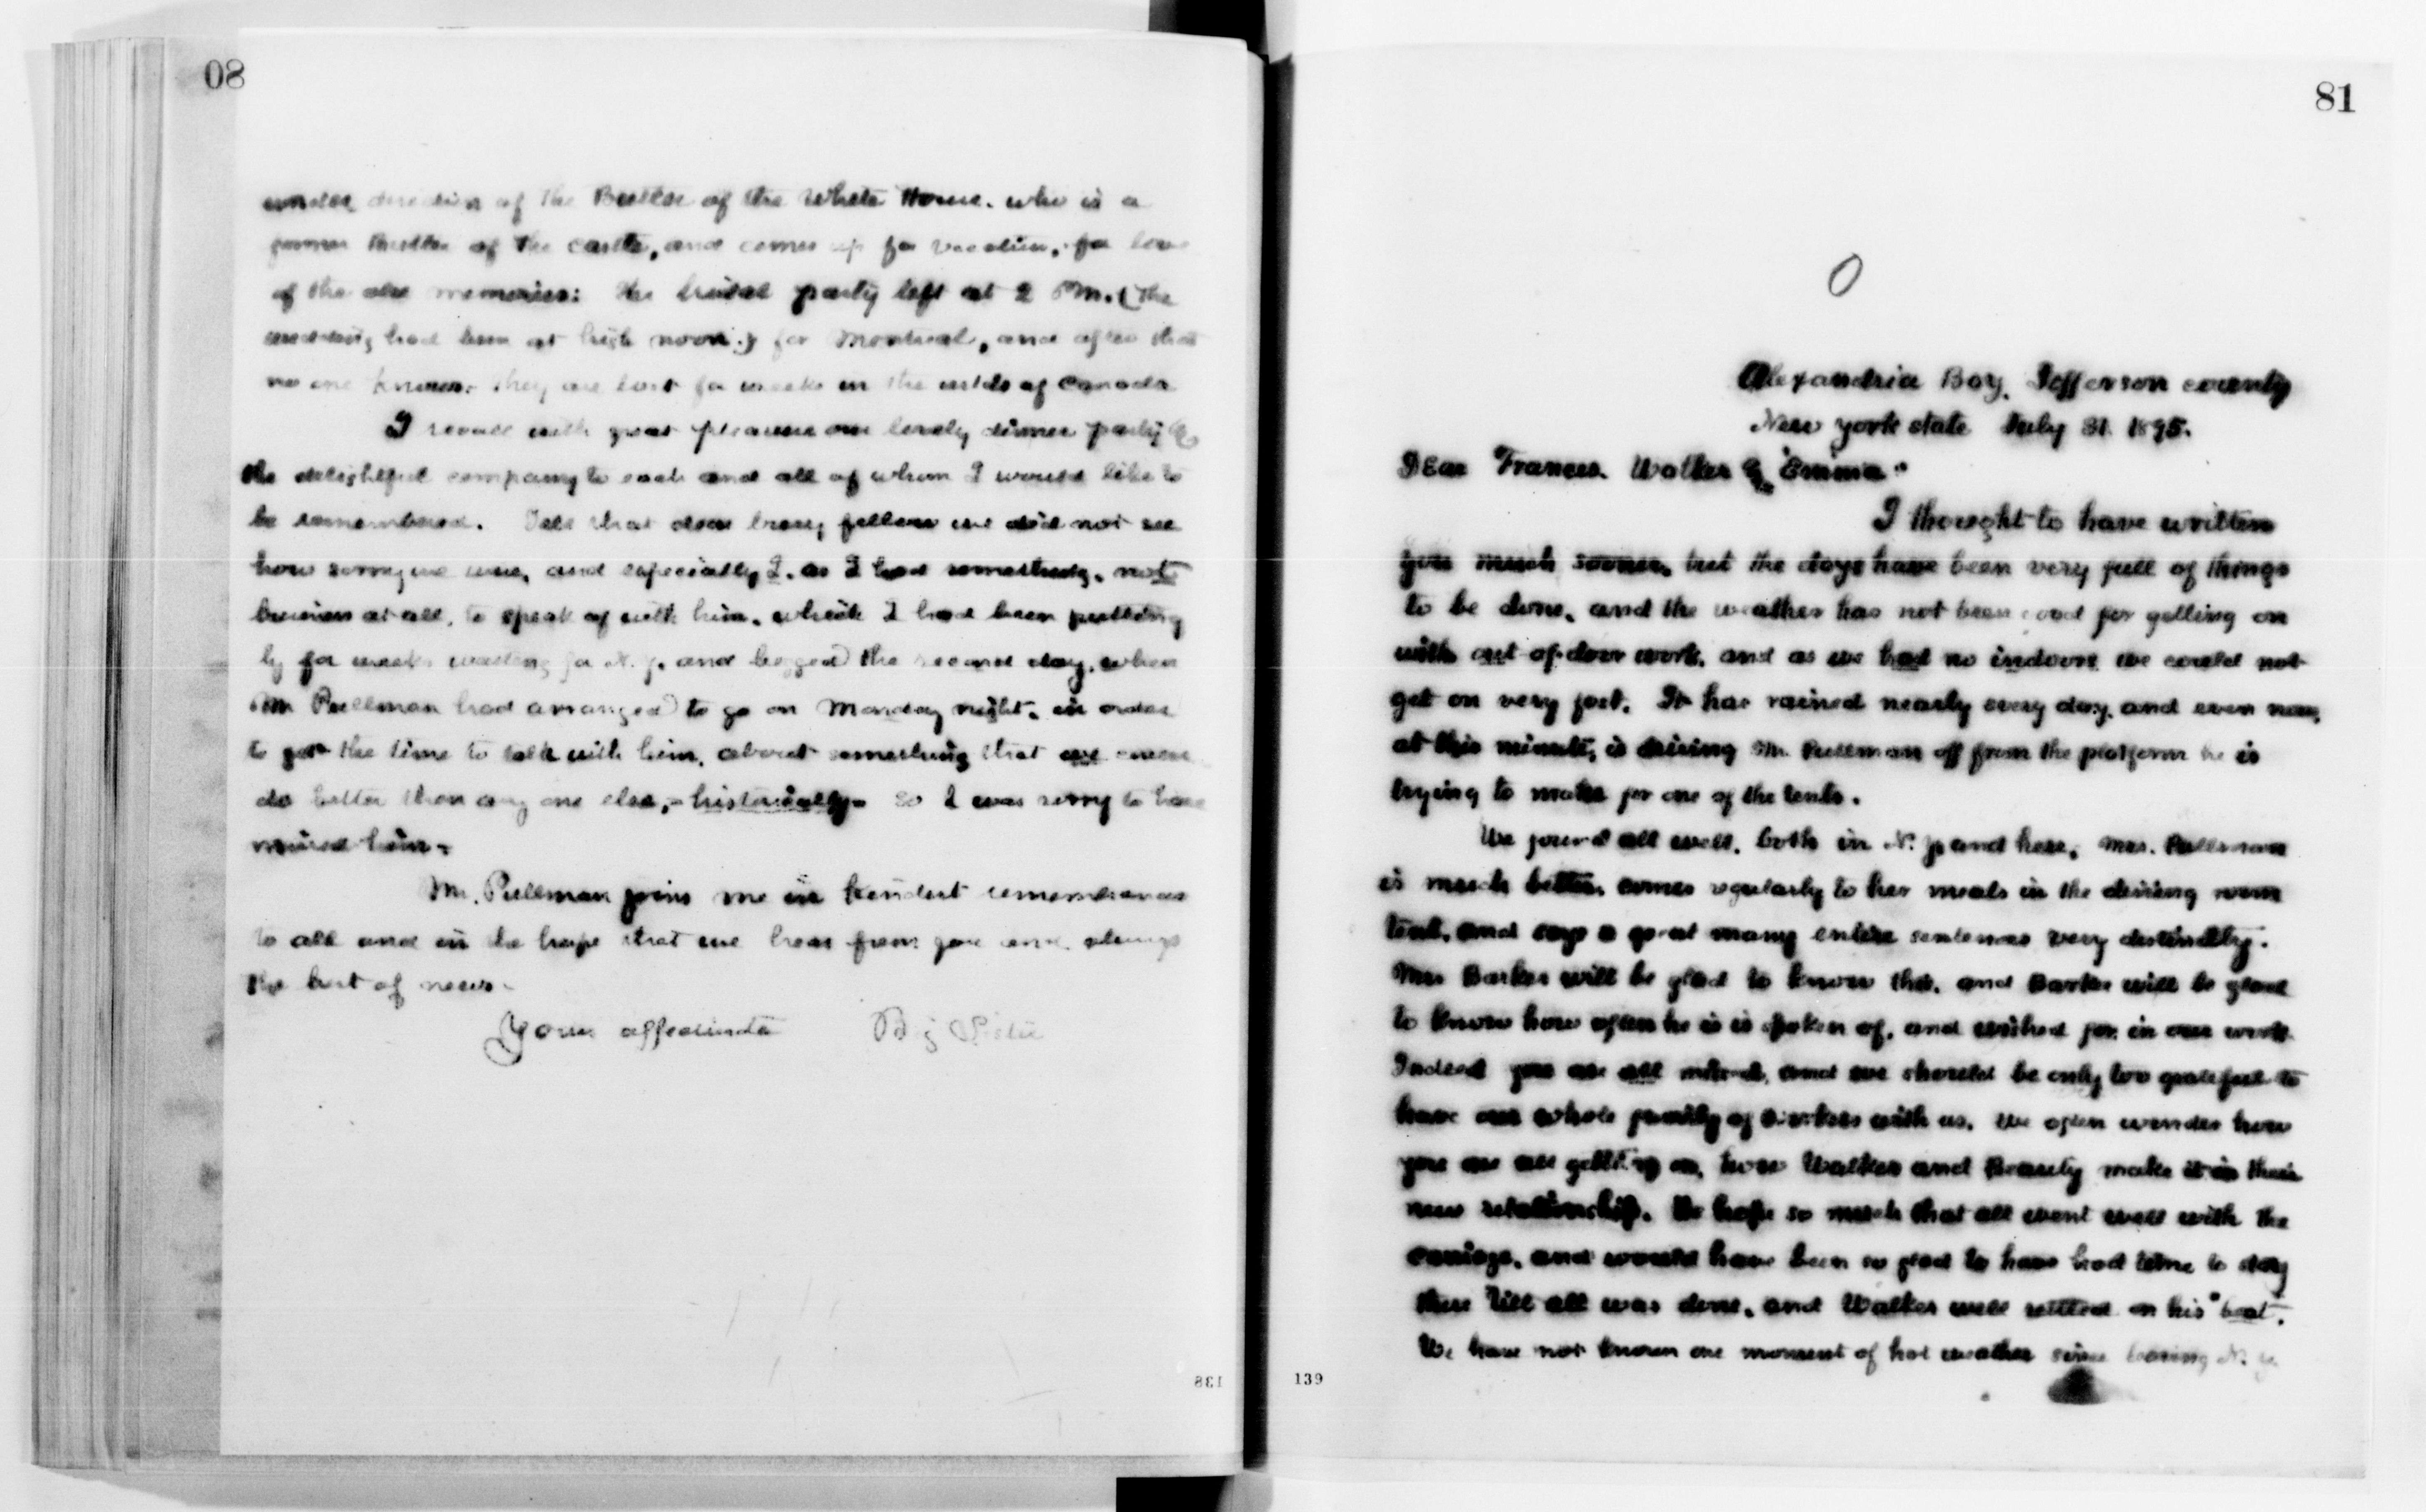 80
under direction of the Butler of the White House. who is a
former Butler of the castle, and comes up for vacation, for love
of the old memories: the bridal party left at 2 P.M. (the
wedding had been at high noon.) for Montreal, and after that
no one knows. They are lost for weeks in the wilds of Canada
I recall with great pleasure our lovely dinner party &
the delightful company to each and all of whom I would like to
be remembered. Tell that dear busy fellow we did not see
how sorry we were, and especially I. as I had something, not
business at all, to speak of with him, which I had been putting
by for weeks waiting for N. Y. and begged the second day, when
Mr Pullman had arranged to go on Monday night, in order
to get the time to talk with him, about something that we
do better than any one else, - historically - so I was sorry to have
missed him -
Mr. Pullman joins me in kindest remembrances
to all and in the hope that we hear from you and always
the best of news -
Yours affectionate Big Sister
138
81
Alexandria Bay, Jefferson county
New York state July 31. 1895.
Dear Frances. Walter & Emma:
I thought to have written
you much sooner, but the days have been very full of things
to be done, and the weather has not been good for getting on
with out of door work, and as we had no indoors we could not
get on very fast. It has rained nearly every day, and even now,
at this minute, is driving Mr. Pullman off from the platform he is
trying to make for one of the tents.
We found all well, both in N. Y and here, Mrs. Pullman
is much better, comes regularly to her meals in the dining room
tent, and says a great many entire sentences very distinctly.
Mrs Barker will be glad to know this, and Barker will be glad
to know how often he is is spoken of, and wished for, in our work
Indeed you are all missed, and we should be only too grateful to
have our whole family of workers with us. We often wonder how
you are all getting on, how Walter and Beauty make it in their
new relationship. We hope so much that all went well with the
carriage, and would have been so glad to have had time to stay
there till all was done, and Walter well settled on his "boat".
We have not known one moment of hot weather since leaving N. Y.
139